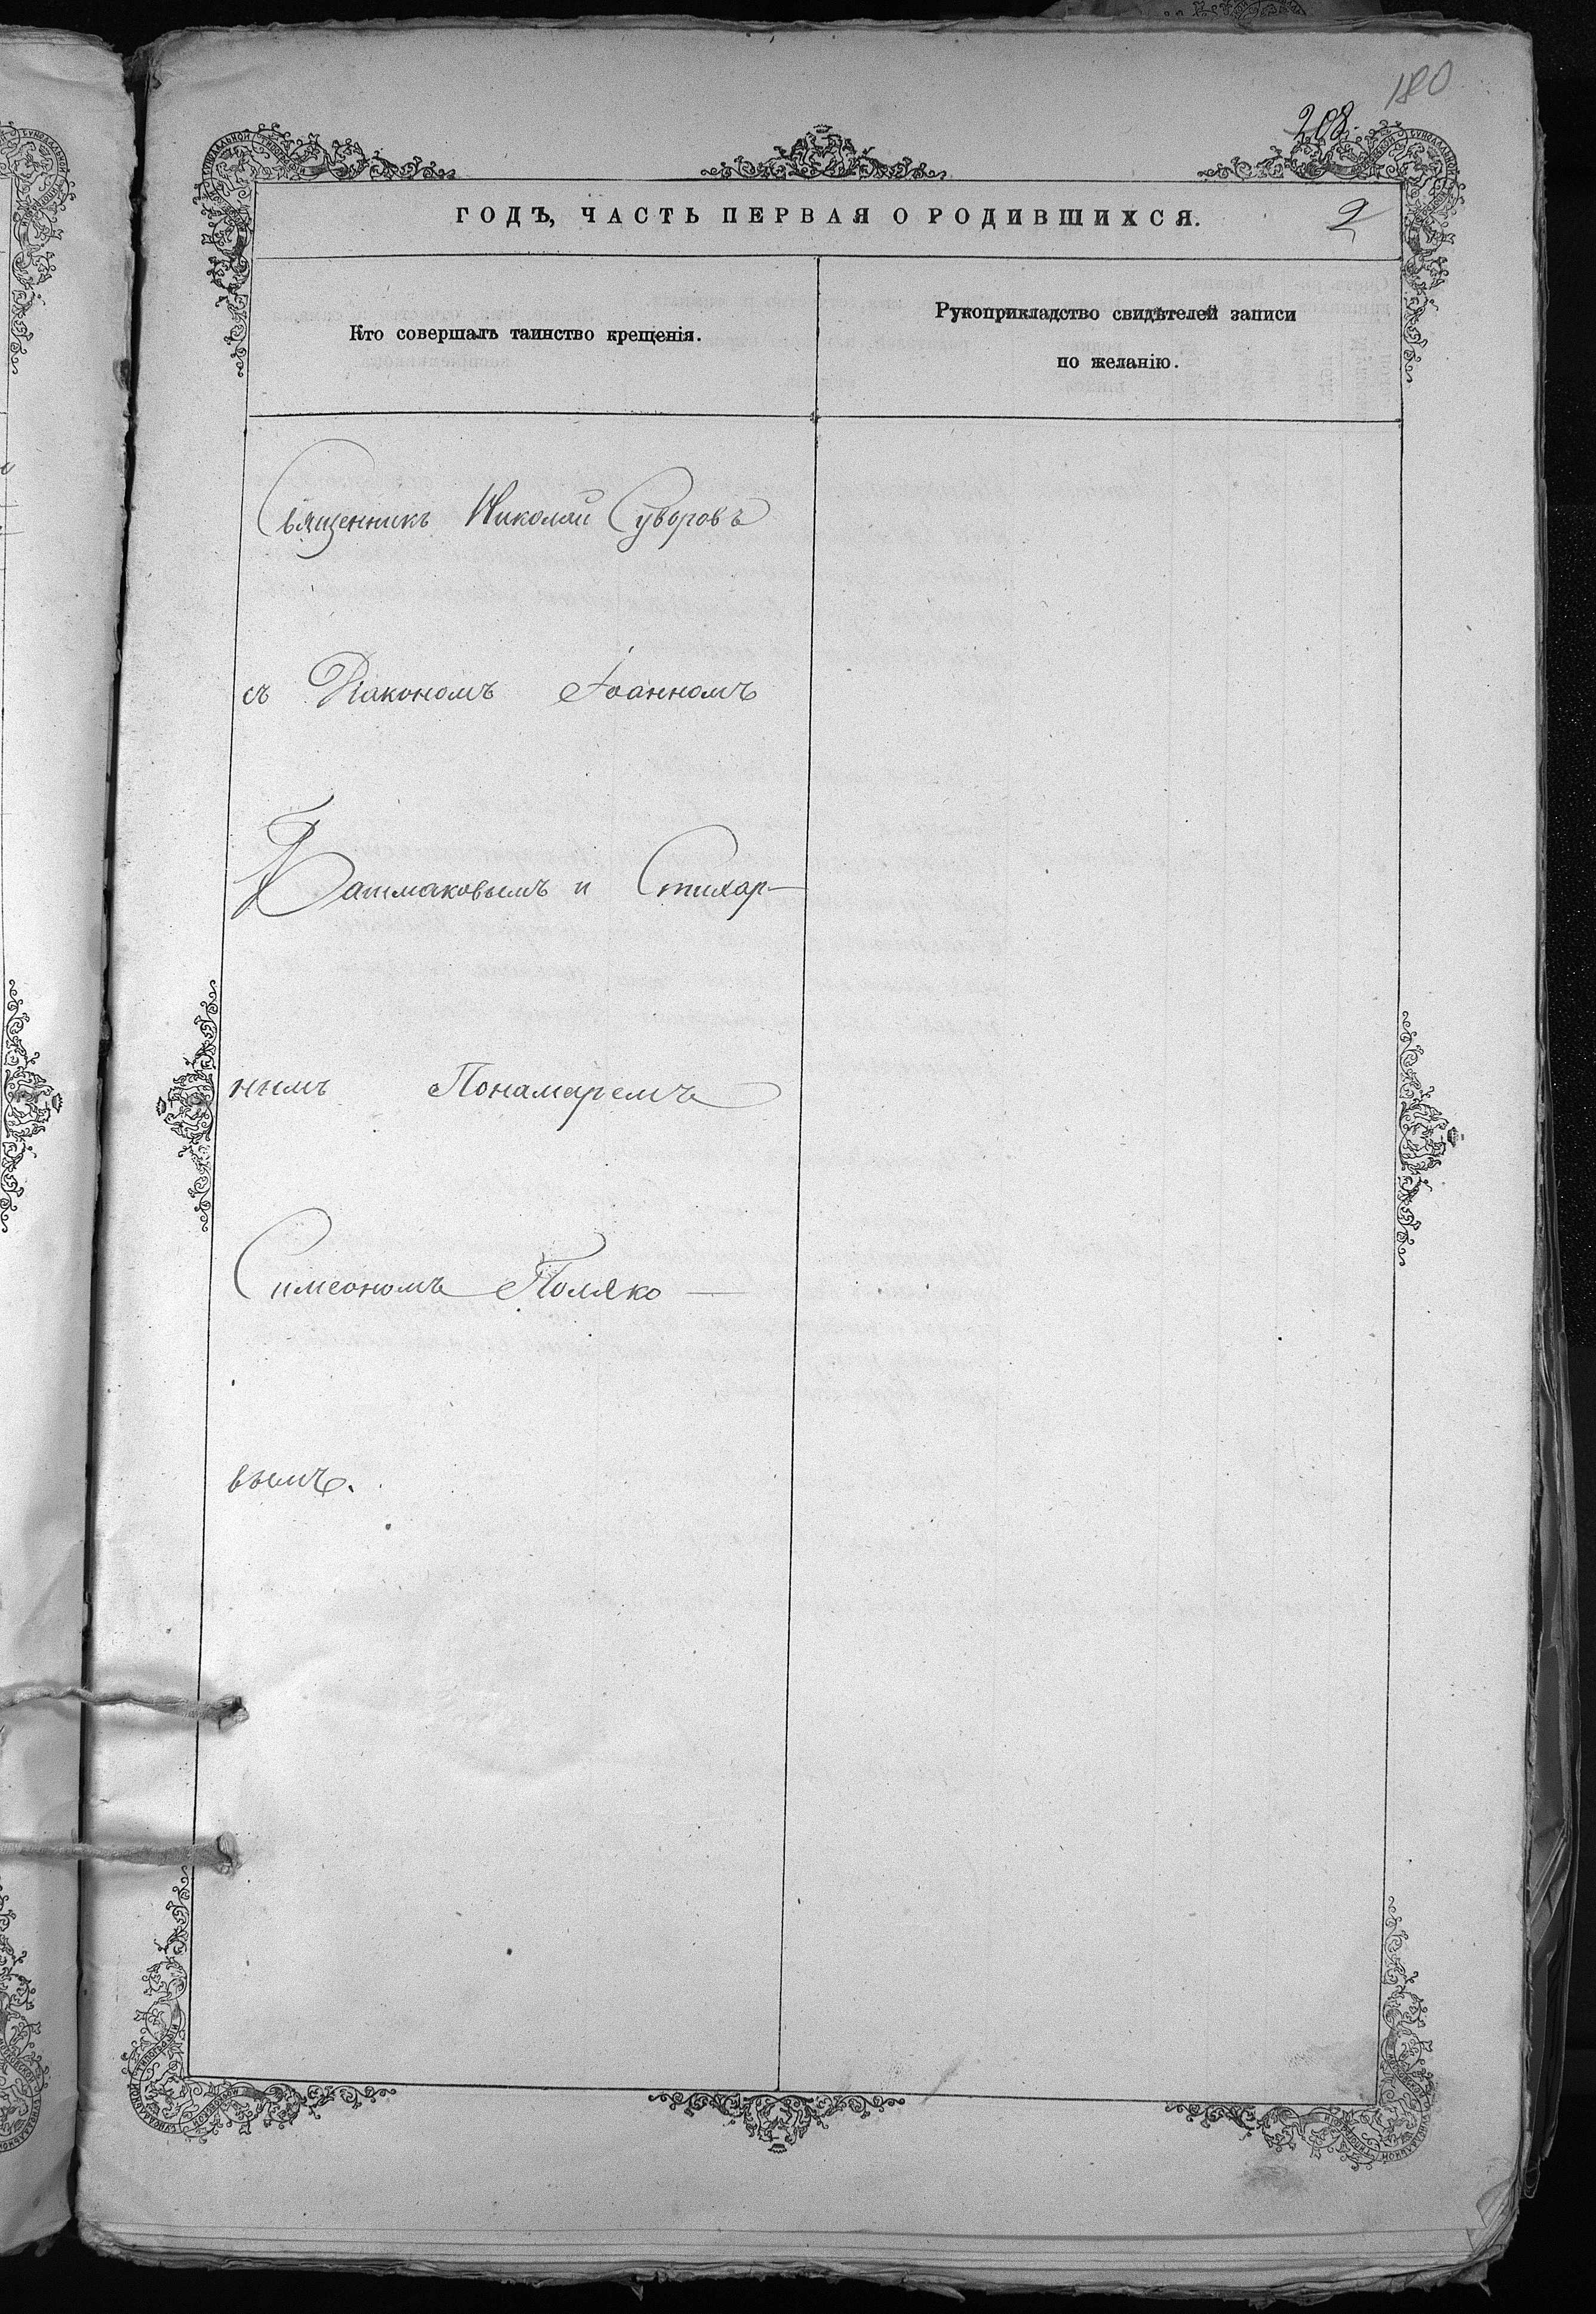 180
208.
ГОДЪ, ЧАСТЬ ПЕРВАЯ О РОДИВШИХСЯ.
2
Кто совершалъ таинство крещенія.
Рукоприкладство свидѣтелей записи
по желанію.
Священникъ Николай Суворовъ
съ Діакономъ Іоанномъ
Башмаковымъ и Стихар-
нымъ Понамаремъ
Симеономъ Поляко-
вымъ.